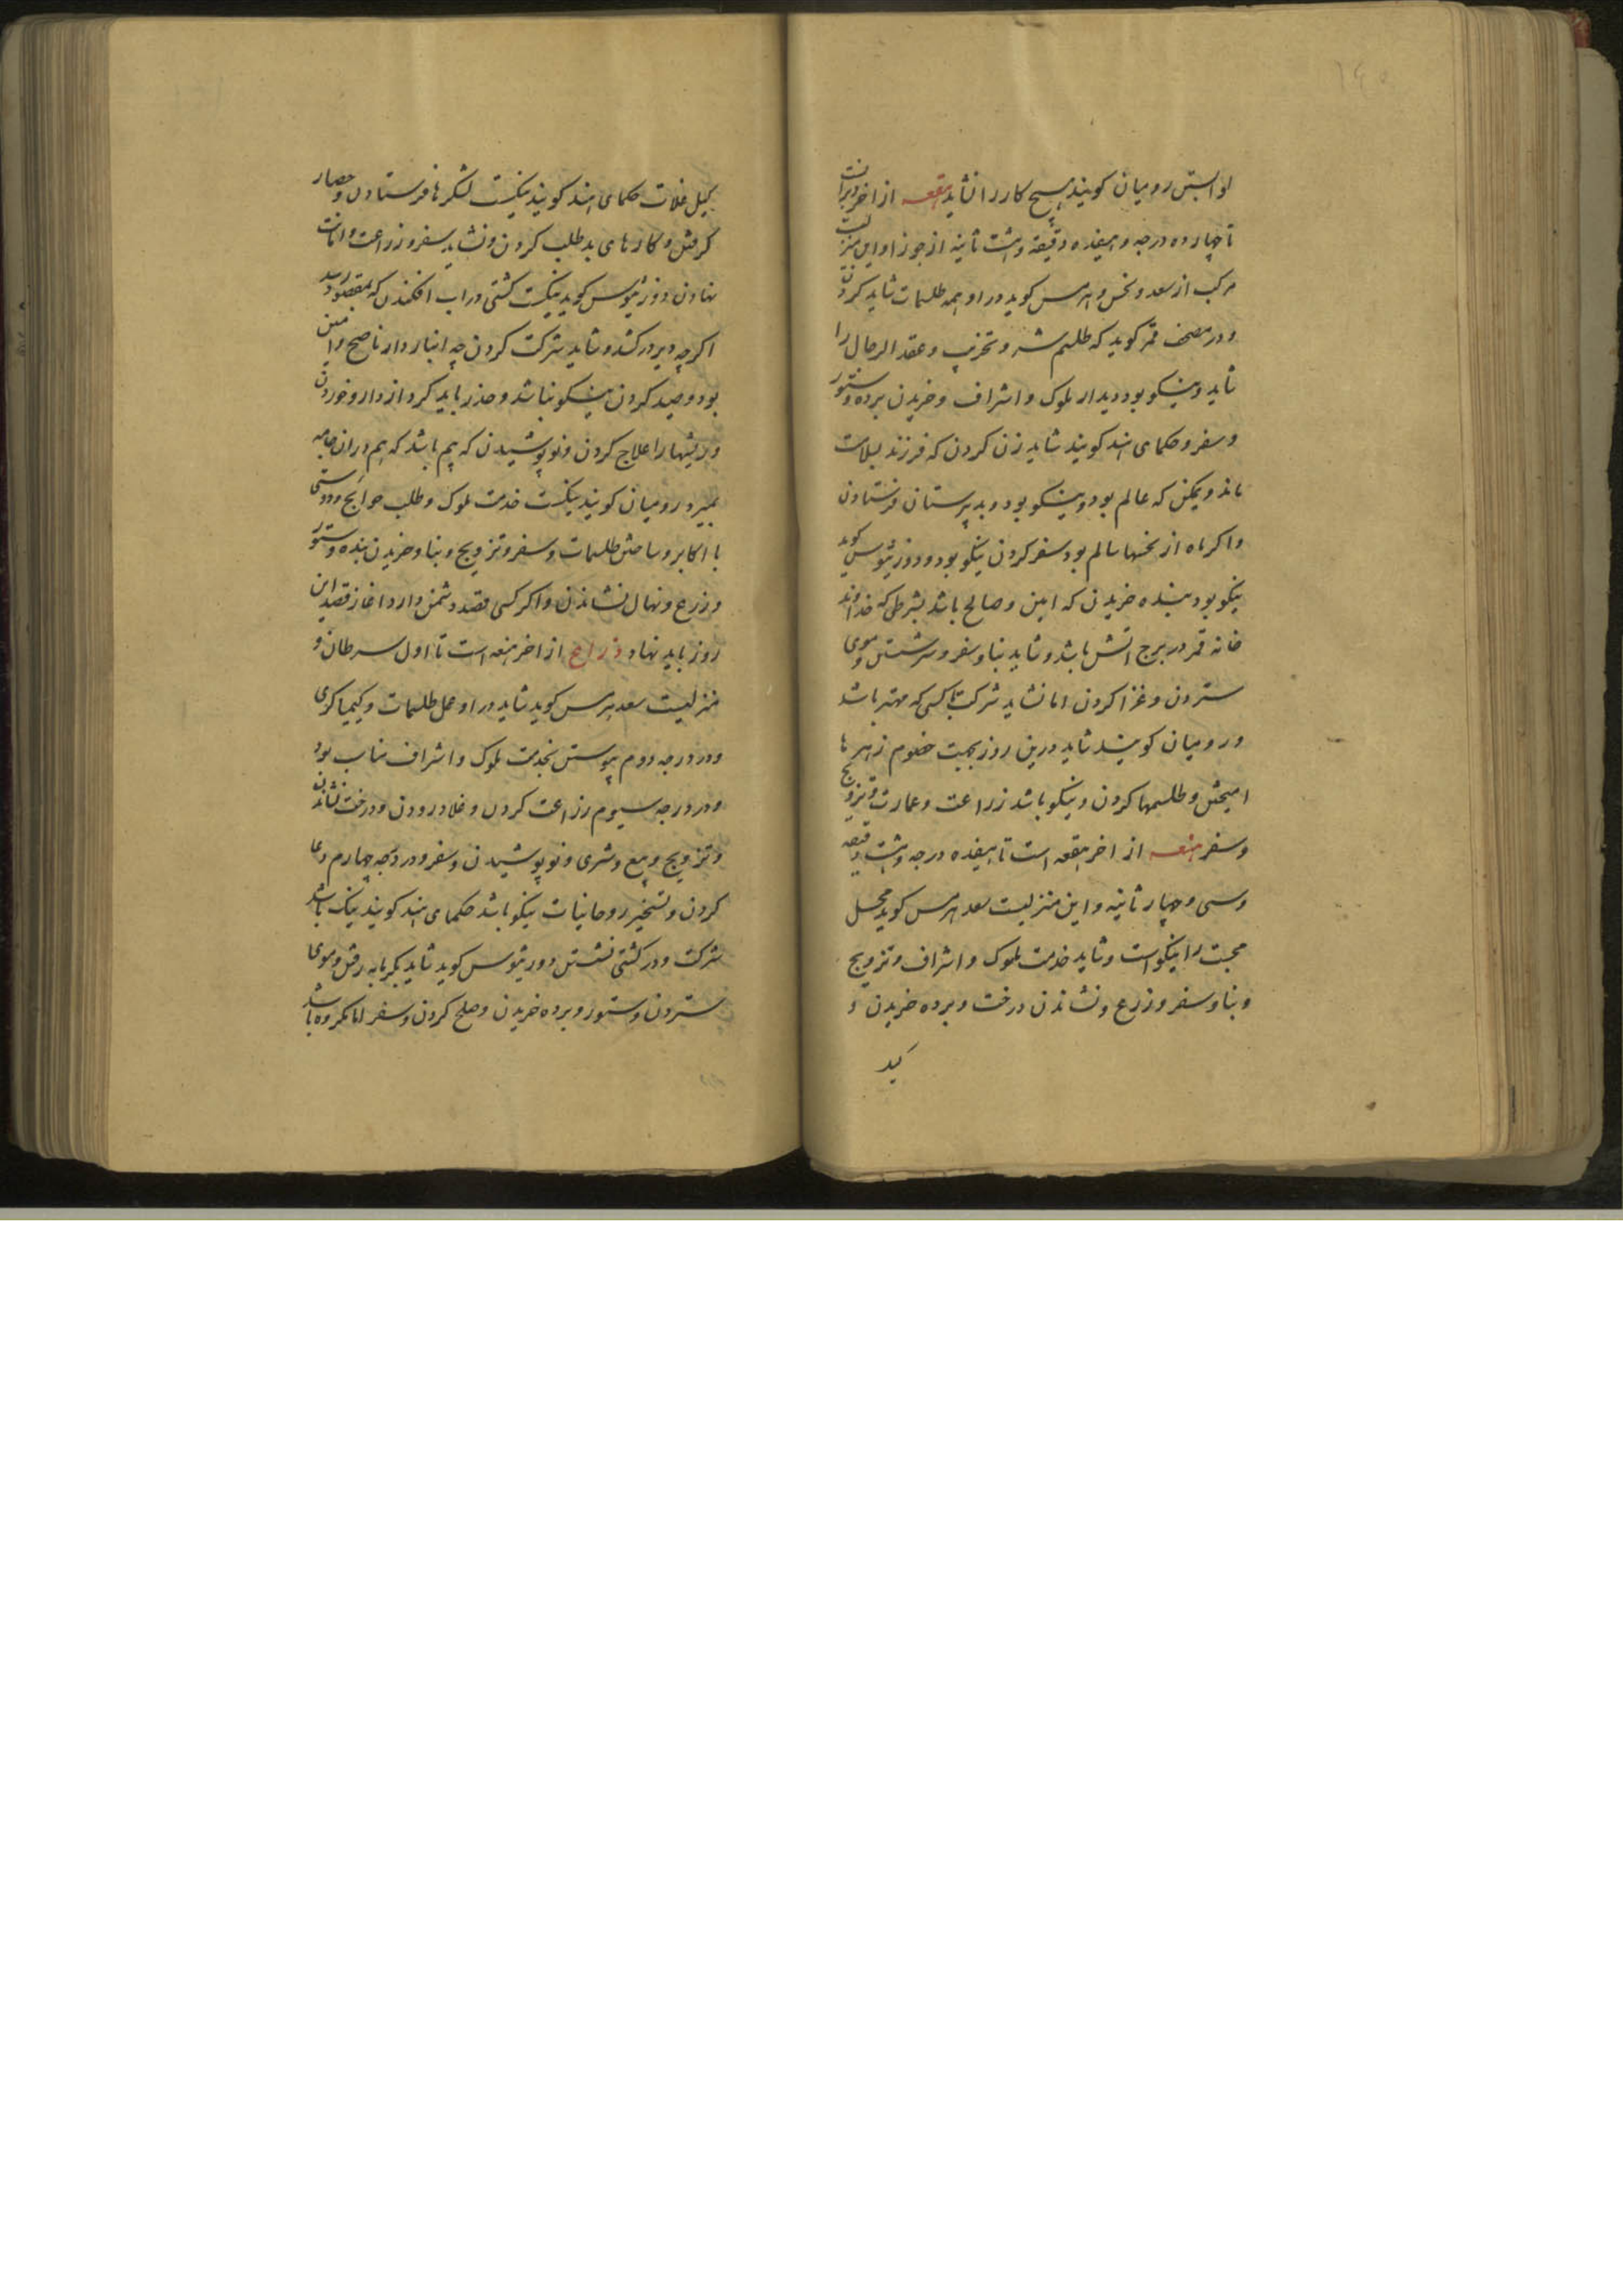 رومیان کویند هیچ کار را نشاید هقعه از اخر دبرانست
تا چهارده درجه و هیفده دقیقه و هشت ثانیه از جوزا و این منزلیست
مرکب از سعد و نحس و هرمس کوید در او همه طلسمات شاید کردن
و در مصحف قمر کوید که طلسم شر و تخریب و عقد الرجال را
شاید و نیکو بود دیدار ملوک و اشراف و خریدن برده و ستور
و سفر و حکمای هند کویند شاید زن کردن که فرزند بسلامت
ماند و ممکن که عالم بود و نیکو بود و بدبیرستان فرستادن
و اکر ماه از نحسها سالم بود سفر کردن نیکو بود و دوزثیوس کوید
نیکو بود بنده خریدن که امین و صالح باشد بشرطی که خداوند
خانه قمر در برج اتش باشد و شاید بنا و سفر و سر شستن و موی
ستردن و غزا کردن اما نشاید شرکت با کسی که مهتر باشد
و رومیان کویند شاید درین روز بجهت خصوم زهر ها
امیختن و طلسمها کردن و نیکو باشد زراعت و عمارت و تزویج
و سفر هنعه از اخر هقعه است تا هیفده درجه و هشت دقیقه
و سی و چهار ثانیه و این منزلیست سعد هرمس کوید عمل
محبت را نیکو است و شاید خدمت ملوک و اشراف و تزویج
و بنا و سفر و زرع و نشاندن درخت و برده خریدن و
کیل
کیل غلات حکمای هند کویند نیکست لشکر ها فرستادن و حصار
کرفتن و کارهای بد طلب کردن و نشاید سفر و زراعت و امانت
نهادن دوزثیوس کوید نیکست کشتی در اب افکندن که بمقصود رسد
اکرچه دیر درکشد و شاید شرکت کردن چه انبار دار ناصح و امین
بود و صید کردن نیکو نباشد و حذر باید کرد از دارو خوردن
و ریشها را علاج کردن و نو پوشیدن که بیم باشد که هم دران جامه
بمیرد رومیان کویند نیکست خدمت ملوک و طلب حوایج و دوستی
با اکابر و ساختن طلسمات و سفر و تزویج و بنا و خریدن بنده و ستور
و زرع و نهال نشاندن و اکر کسی قصد دشمن دارد اغاز قصد این
روز باید نهاد ذراع از اخر هنعه است تا اول سرطان و
منزلیست سعد هرمس کوید شاید در او عمل طلسمات و کیمیاکری
و در درجه دوم پیوستن بخدمت ملوک و اشراف مناسب بود
و در درجه سیوم زراعت کردن و غلا درودن و درخت نشاندن
و تزویج و بیع و شری و نو پوشیدن و سفر و در درجه چهارم دعا
کردن و تسخیر روحانیات نیکو باشد حکمای هند کویند نیک باشد
شرکت و در کشتی نشستن دورثیوس کوید شاید بکرمابه رفتن و موی
ستردن و ستور و برده خریدن و صلح کردن و سفر اما مکروه باشد